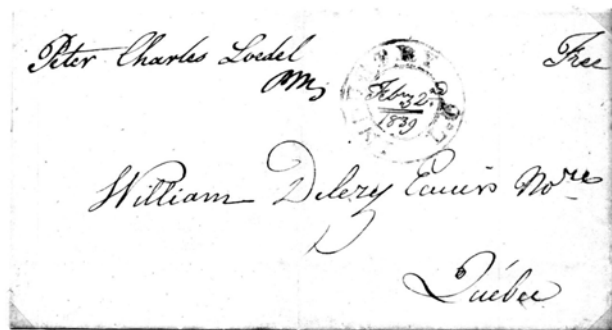 Peter Charles Loedel Free
PM
1839
William Delery Ecuier Nore
Québec